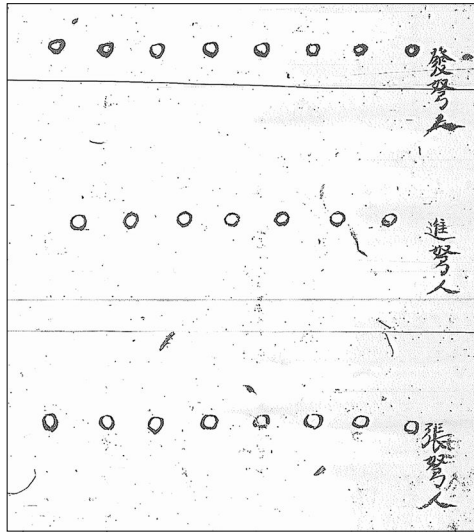 發弩人
進弩人
張弩人